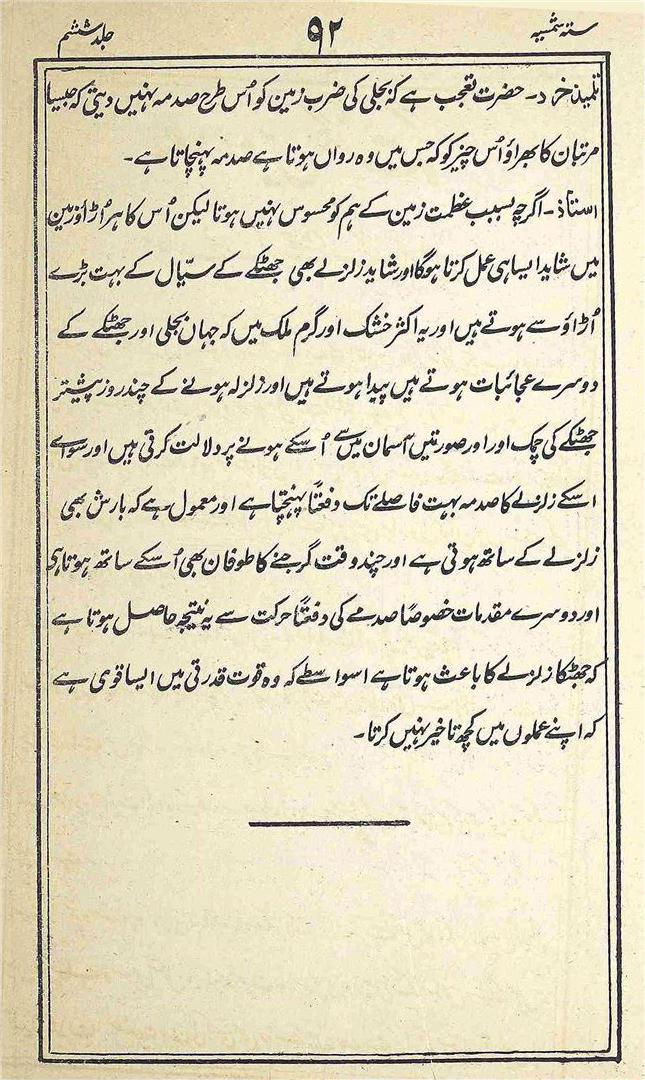 ستہ شمسیہ ۹۲ جلد ششم
تلمیذ خرد۔ حضرت تعجب ہے کہ بجلی کی ضرب زمین کو اُس طرح صدمہ نہیں دیتی کہ جیسا
مرتبان کا بھراؤ اُس چیز کو کہ جس میں وہ رواں ہوتا ہے صدمہ پہنچاتا ہے۔
استاذ۔ اگرچہ بسبب عظمت زمین کے ہم کو محسوس نہیں ہوتا لیکن اُس کا ہر اُڑاؤ زمین
میں شاید ایسا ہی عمل کرتا ہوگا اور شاید زلزلے بھی جھٹکے کے سیّال کے بہت بڑے
اُڑاؤ سے ہوتے ہیں اور یہ اکثر خشک اور گرم ملک میں کہ جہان بجلی اور جھٹکے کے
دوسرے عجائبات ہوتے ہیں پیدا ہوتے ہیں اور زلزلہ ہونے کے چند روز پیشتر
جھٹکے کی چمک اور اور صورتیں آسمان میں سے اُسکے ہونے پر دلالت کرتی ہیں اور سوائے
اسکے زلزلے کا صدمہ بہت فاصلے تک دفعتاً پہنچتا ہے اور معمول ہے کہ بارش بھی
زلزلے کے ساتھ ہوتی ہے اور چند وقت گرجنے کا طوفان بھی اُسکے ساتھ ہوتا ہی
اور دوسرے مقدمات خصوصاً صدمے کی دفعتاً حرکت سے یہ نتیجہ حاصل ہوتا ہے
کہ جھٹکا زلزلے کا باعث ہوتا ہے اسواسطے کہ وہ قوت قدرتی میں ایسا قوی ہے
کہ اپنے عملوں میں کچھ تاخیر نہیں کرتا۔